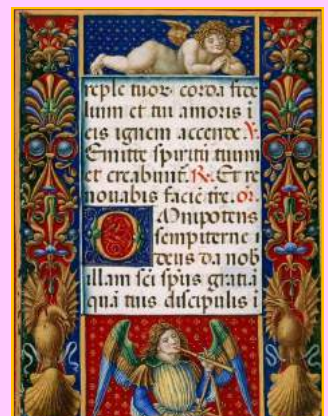 reple tuoꝝ corda fide
lium et tui amoris i
eis ignem accende ℣.
Emitte spiritũ tuum
et creabunt̃. ℟. Et re
nouabis faciẽ tr̃e. or̃.
Omnipotens
sempiterne
deus da nob
illam sc̃i sp̃us gratiã
quã tuis discipulis i